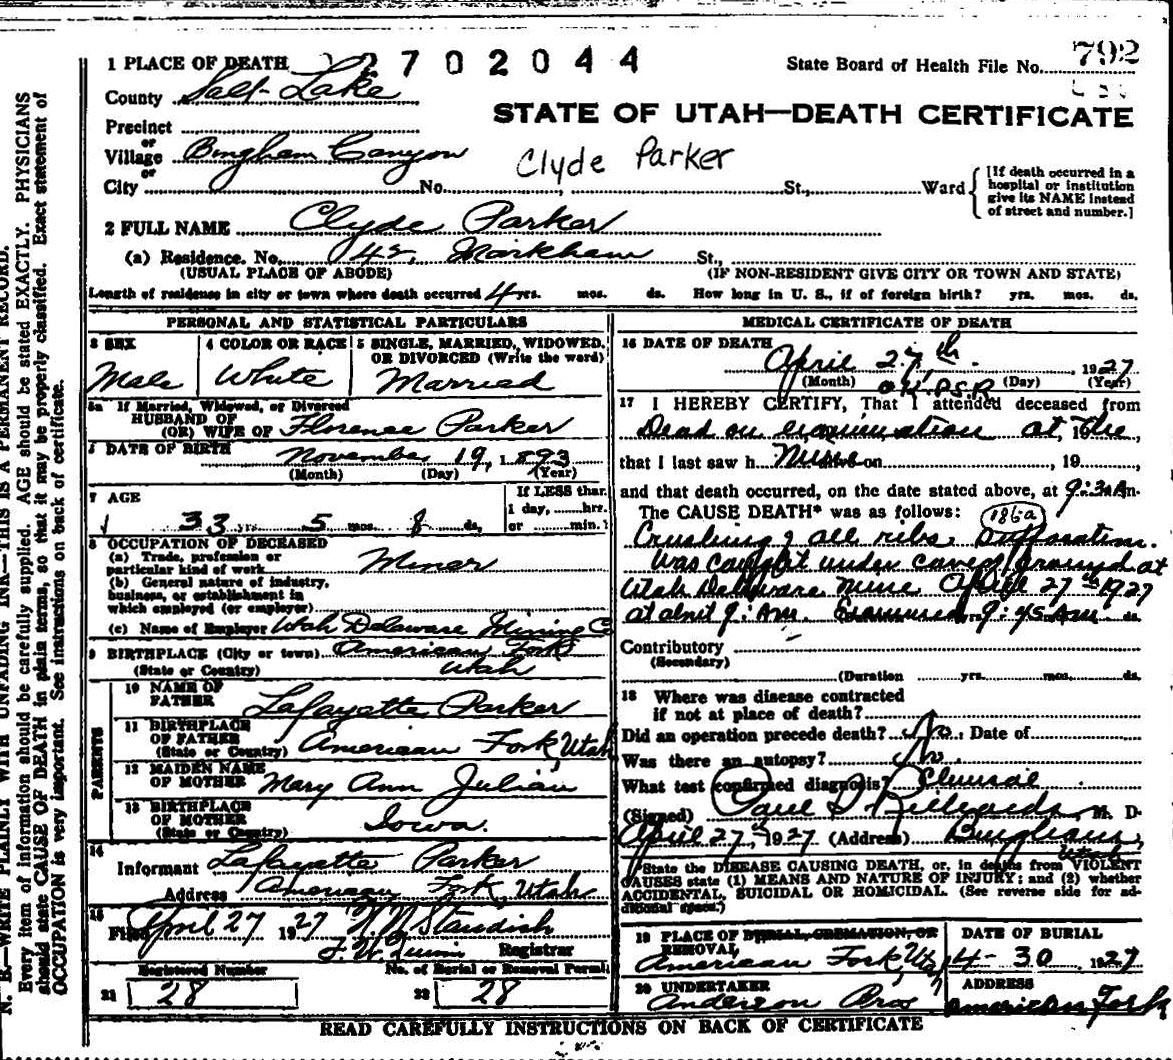 792
1 PLACE OF DEATH 2702044 State Board of Health File No.
County Salt Lake
STATE OF UTAH—DEATH CERTIFICATE
Precinct
or
Village Bingham Canyon
Clyde Parker
or
City No. St., Ward
[If death occurred in a hospital or institution give its NAME instead of street and number.]
2 FULL NAME Clyde Parker
(a) Residence. No. Markham St.,
(USUAL PLACE OF ABODE) (IF NON-RESIDENT GIVE CITY OR TOWN AND STATE)
Length of residence in city or town where death occurred 4 yrs. mos. ds. How long in U. S., if of foreign birth? yrs. mos. ds.
PERSONAL AND STATISTICAL PARTICULARS
3 SEX 4 COLOR OR RACE 5 SINGLE, MARRIED, WIDOWED, OR DIVORCED (Write the word)
Male White Married
5a If Married, Widowed, or Divorced
HUSBAND OF
(OR) WIFE OF Florence Parker
DATE OF BIRTH November 19, 1893
(Month) (Day) (Year)
7 AGE If LESS than
1 day, hrs.
33 yrs. 5 mos. 8 ds. or min.?
8 OCCUPATION OF DECEASED
(a) Trade, profession or
particular kind of work Miner
(b) General nature of industry,
business, or establishment in
which employed (or employer)
(c) Name of Employer Utah Delaware Mining Co
9 BIRTHPLACE (City or town) American Fork
(State or Country) Utah
PARENTS
10 NAME OF
FATHER Lafayatte Parker
11 BIRTHPLACE
OF FATHER
(State or Country) American Fork, Utah
12 MAIDEN NAME
OF MOTHER Mary Ann Julian
13 BIRTHPLACE
OF MOTHER
(State or Country) Iowa.
14
Informant Lafayatte Parker
Address American Fork, Utah
15
Filed April 27 1927 Standish
Registrar
Registered Number No. of Burial or Removal Permit
21 28 22 28
MEDICAL CERTIFICATE OF DEATH
16 DATE OF DEATH
April 27th, 1927
(Month) (Day) (Year)
17 I HEREBY CERTIFY, That I attended deceased from
Dead on examination at, 19 the
that I last saw h on , 19 ,
and that death occurred, on the date stated above, at 9:30 A m.
The CAUSE DEATH* was as follows: 186a
Crushing of all ribs. Suffocation.
Was caught under caved ground at
Utah Delaware Mine April 27th 1927
at about 9: AM. Examined 9:45 AM
Contributory
(Secondary)
(Duration yrs. mos. ds.
18 Where was disease contracted
if not at place of death?
Did an operation precede death? No. Date of
Was there an autopsy? No.
What test confirmed diagnosis?
(Signed) Paul S. M. D.
April 27, 1927 (Address) Bingham, Utah
*State the DISEASE CAUSING DEATH, or, in deaths from VIOLENT
CAUSES state (1) MEANS AND NATURE OF INJURY; and (2) whether
ACCIDENTAL, SUICIDAL OR HOMICIDAL. (See reverse side for ad-
ditional space.)
19 PLACE OF BURIAL, CREMATION, OR REMOVAL DATE OF BURIAL
American Fork, Utah 4-30 1927
20 UNDERTAKER ADDRESS
Anderson Bros American Fork
READ CAREFULLY INSTRUCTIONS ON BACK OF CERTIFICATE
N. B.—WRITE PLAINLY WITH UNFADING INK—THIS IS A PERMANENT RECORD.
Every item of information should be carefully supplied. AGE should be stated EXACTLY. PHYSICIANS
should state CAUSE OF DEATH in plain terms, so that it may be properly classified. Exact statement of
OCCUPATION is very important. See instructions on back of certificate.